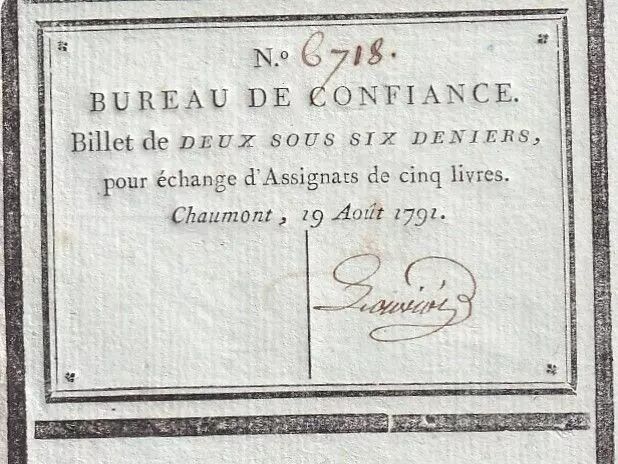 N.º 6718.
BUREAU DE CONFIANCE.
Billet de DEUX SOUS SIX DENIERS,
pour échange d'Assignats de cinq livres.
Chaumont, 19 Août 1791.